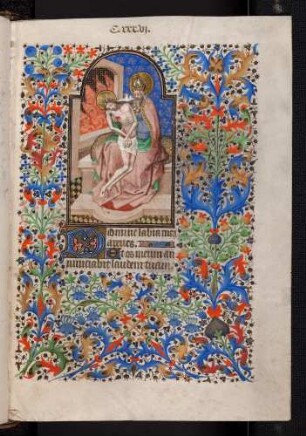 C.xxx.vj.
Domine labia mea
aperies.
Et os meum an
nunciabit laudem tuam.